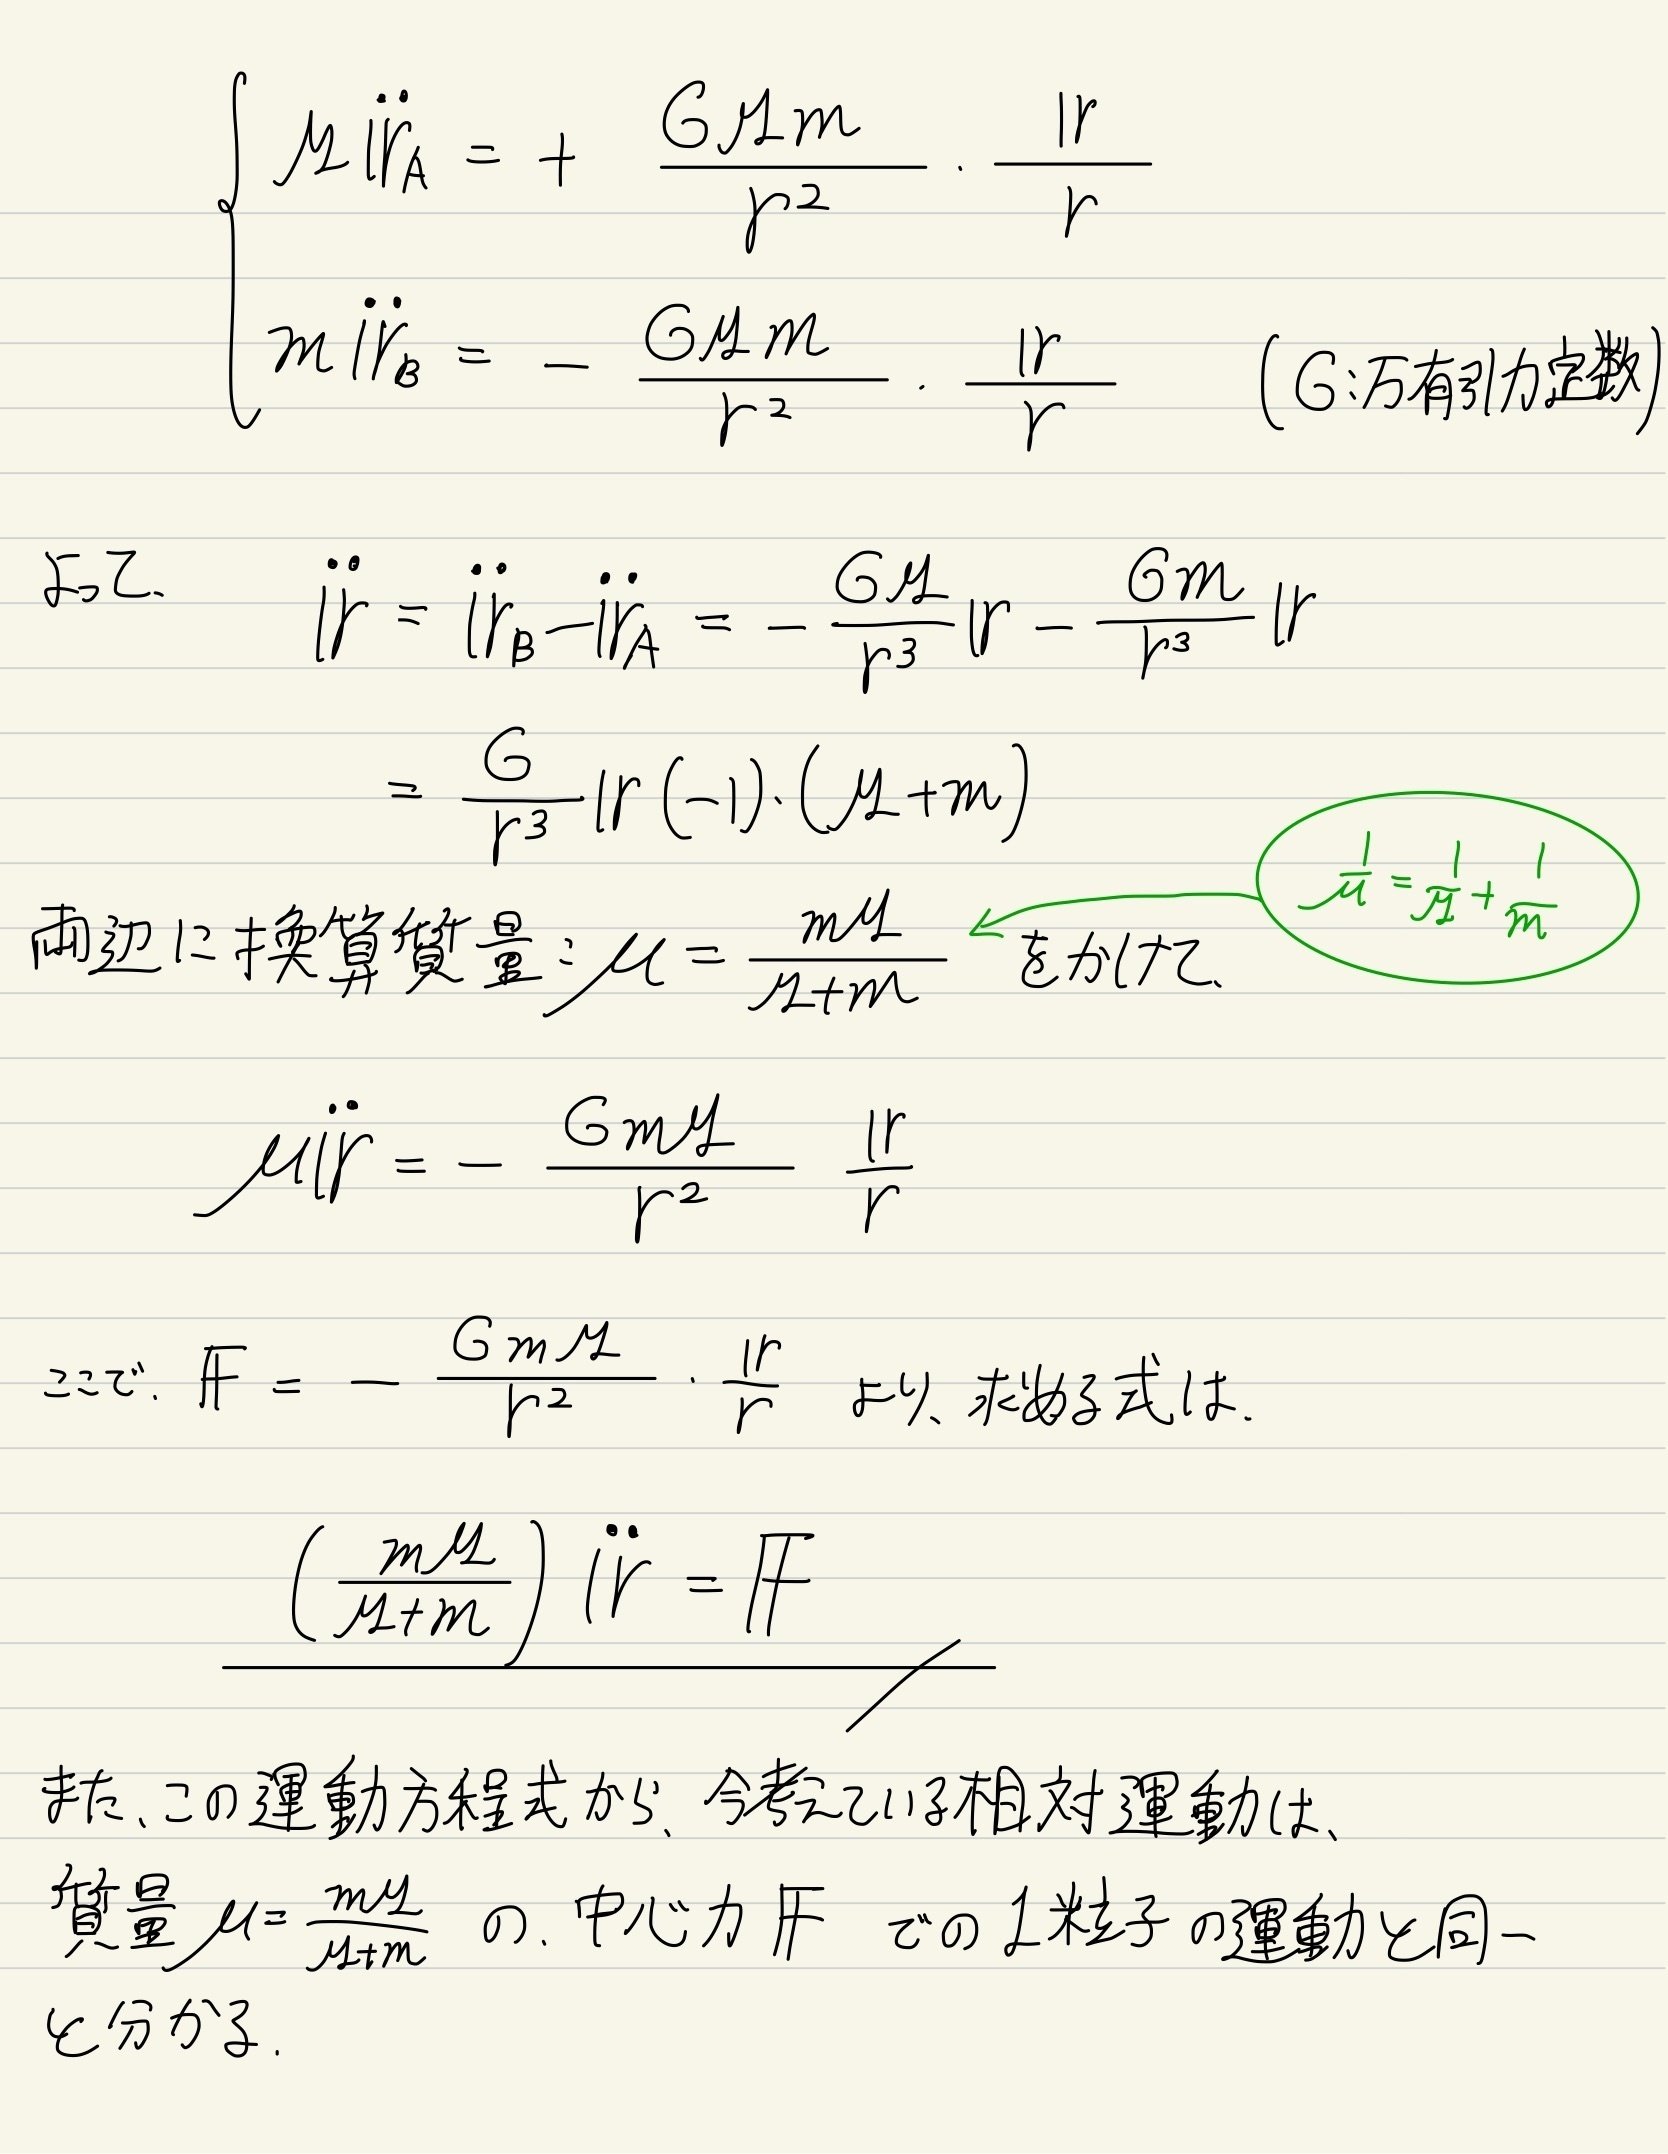 M r̈_A = + GMm/r² · 𝕣/r
m r̈_B = - GMm/r² · 𝕣/r (G:万有引力定数)
よって、 r̈ = r̈_B - r̈_A = - GM/r³ 𝕣 - Gm/r³ 𝕣
= G/r³ 𝕣 (-1)·(M+m)
1/μ = 1/M + 1/m
両辺に換算質量:μ = mM/(M+m) をかけて、
μ r̈ = - GmM/r² 𝕣/r
ここで、𝔽 = - GmM/r² · 𝕣/r より、求める式は、
(mM/(M+m)) r̈ = 𝔽
また、この運動方程式から、今考えている相対運動は、
質量μ = mM/(M+m) の、中心力 𝔽 での1粒子の運動と同一
と分かる.